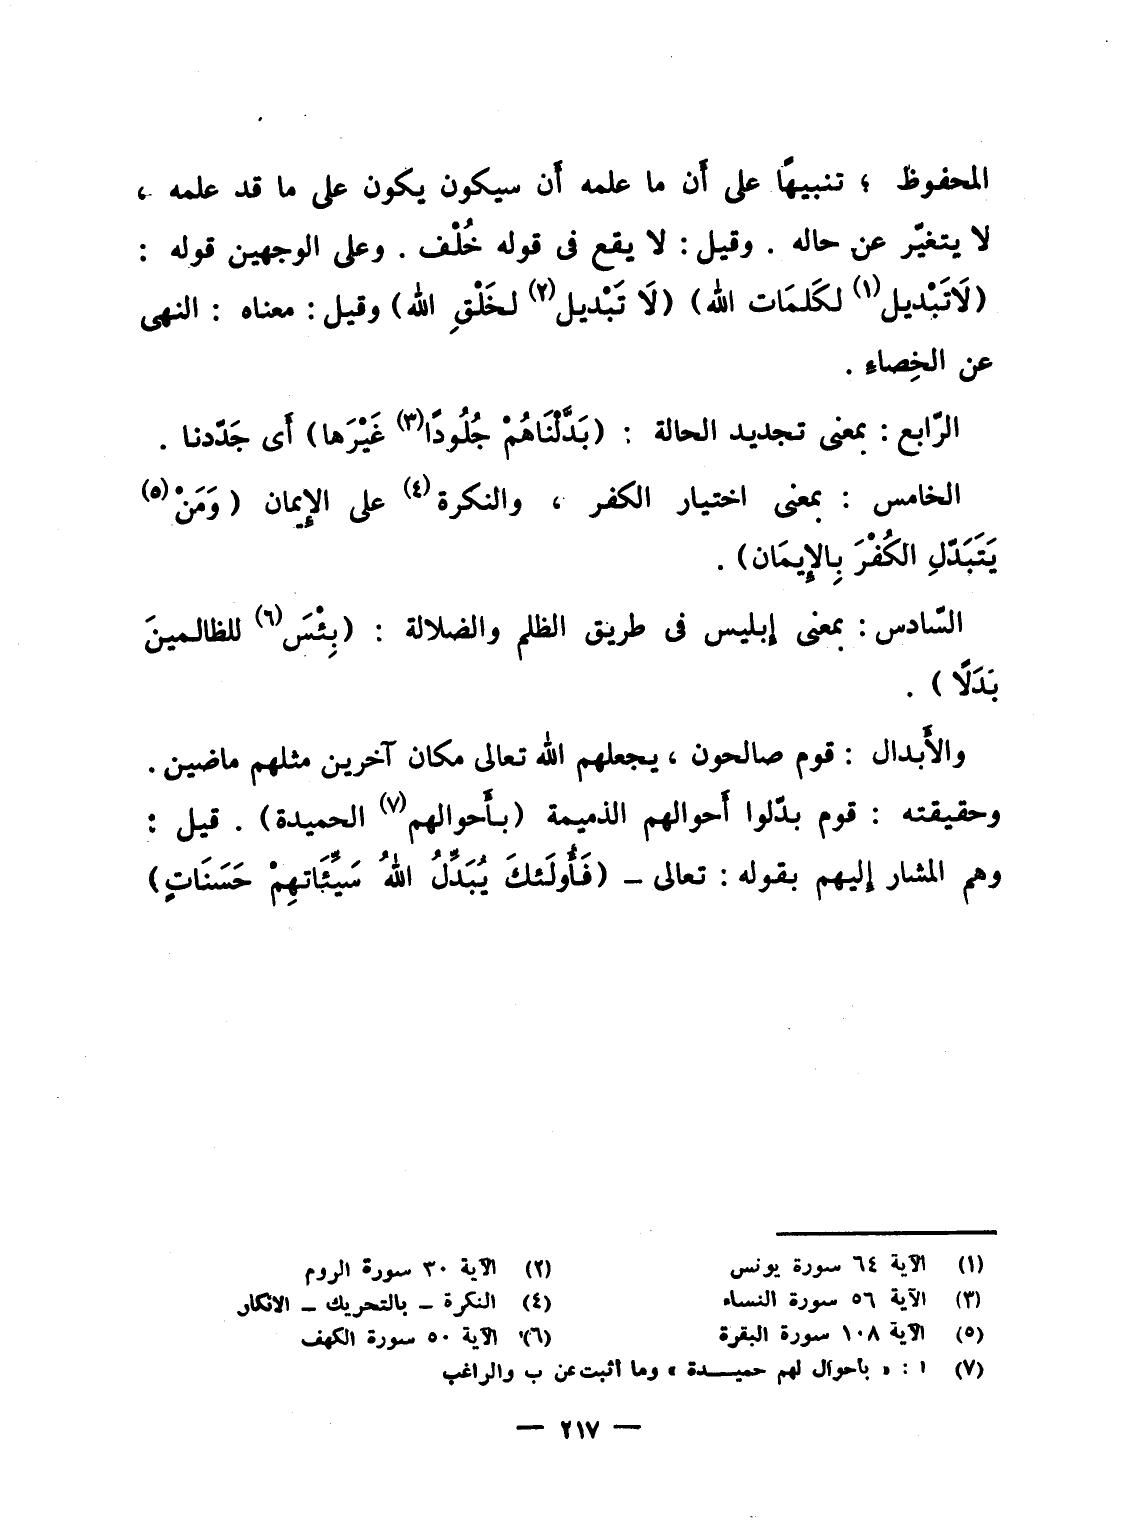 المحفوظ ؛ تنبيهًا على أَن ما علمه أَن سيكون يكون على ما قد علمه ،
لا يتغيّر عن حاله . وقيل : لا يقع فى قوله خُلْف . وعلى الوجهين قوله :
(لَاتَبْديل(١) لكَلمَات الله) (لَا تَبْديل(٢) لخَلْقِ الله) وقيل : معناه : النهى
عن الخِصاءِ .
الرّابع : بمعنى تجديد الحالة : (بَدَّلْنَاهُمْ جُلُودًا(٣) غَيْرَها) أَى جَدّدنا .
الخامس : بمعنى اختيار الكفر ، والنكرة(٤) على الإِيمان ( وَمَنْ(٥)
يَتَبَدّلِ الكُفْرَ بِالإِيمَان) .
السّادس : بمعنى إبليس فى طريق الظلم والضلالة : (بِئْسَ(٦) للظالمينَ
بَدَلًا ) .
والأَبدال : قوم صالحون ، يجعلهم الله تعالى مكان آخرين مثلهم ماضين .
وحقيقته : قوم بدّلوا أَحوالهم الذميمة (بأَحوالهم(٧) الحميدة) . قيل :
وهم المشار إليهم بقوله : تعالى – (فَأُولَئكَ يُبَدِّلُ اللهُ سَيِّئَاتهِمْ حَسَنَاتٍ)
(١) الآية ٦٤ سورة يونس (٢) الآية ٣٠ سورة الروم
(٣) الآية ٥٦ سورة النساء (٤) النكرة – بالتحريك – الانكار
(٥) الآية ١٠٨ سورة البقرة (٦) الآية ٥٠ سورة الكهف
(٧) ا : « باحوال لهم حميدة » وما أثبت عن ب والراغب
— ٢١٧ —